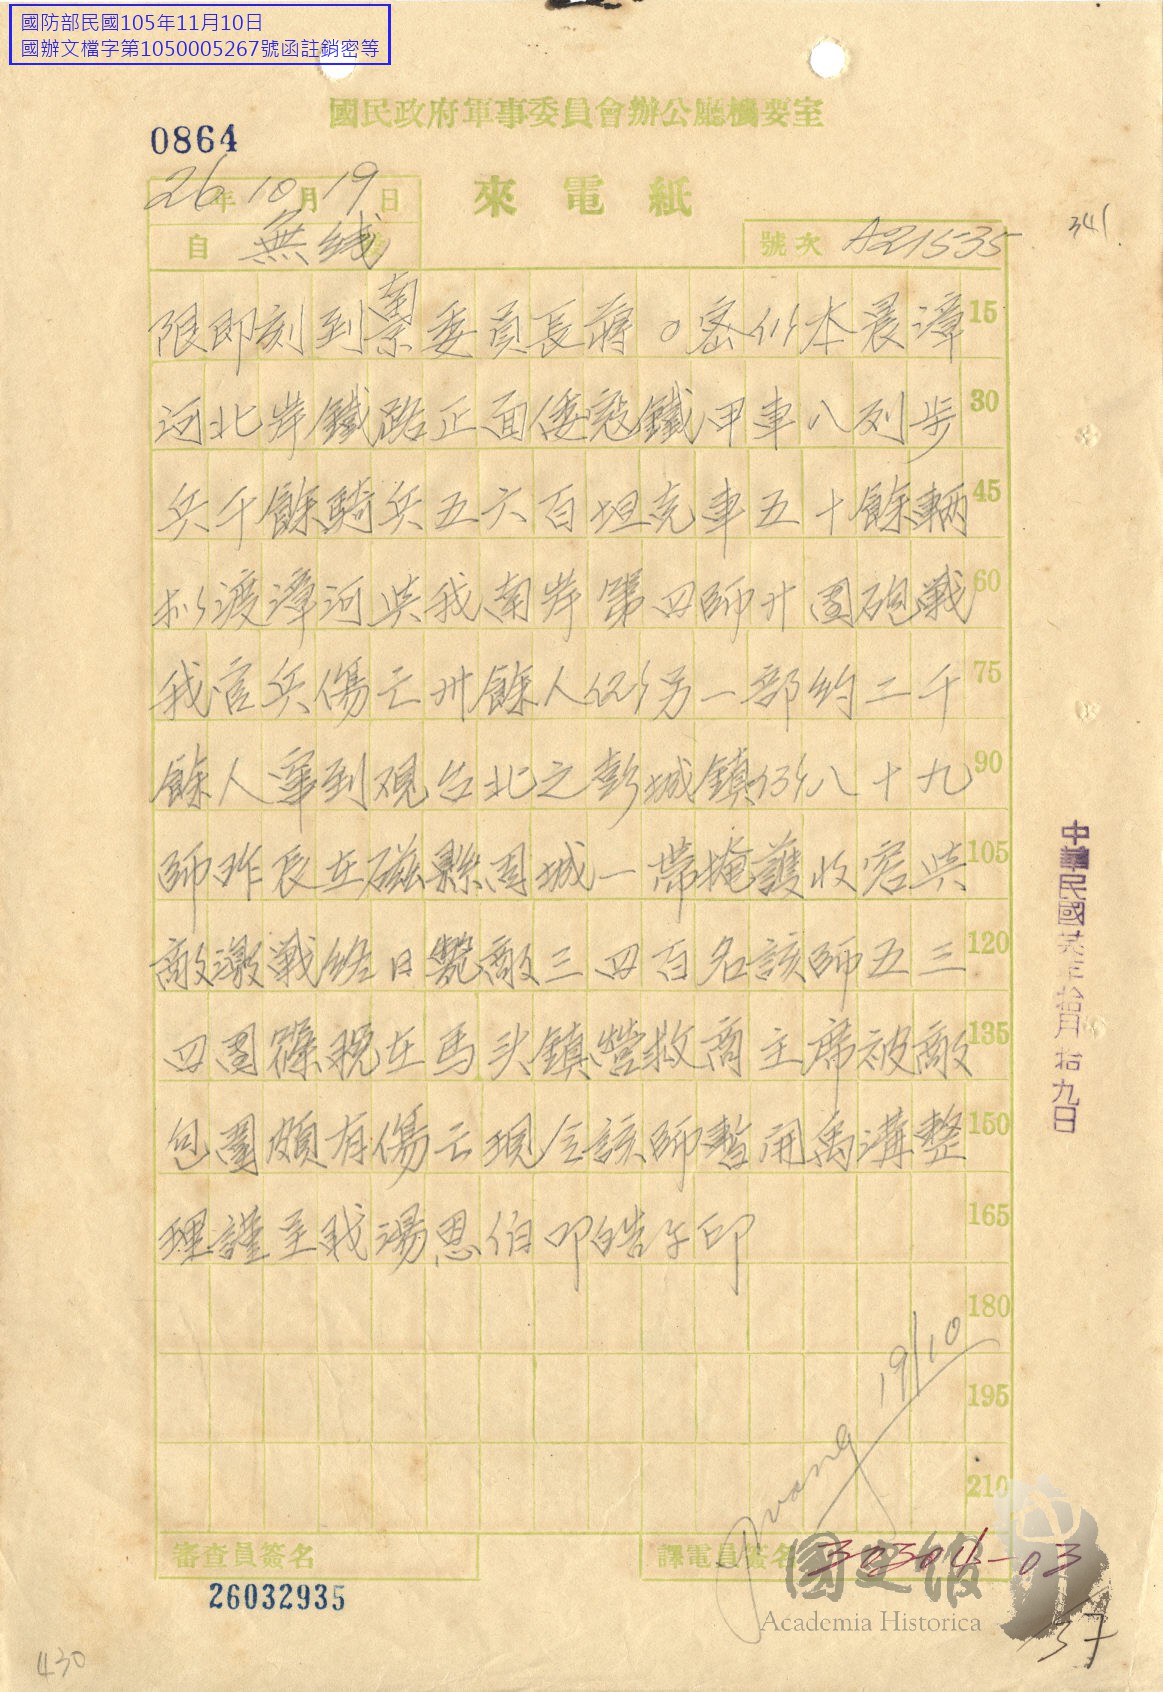 國防部民國105年11月10日
國辦文檔字第1050005267號函註銷密等
國民政府軍事委員會辦公廳機要室
0864
26年10月19日
來電紙
自 無线
號次 A21535
341
限即刻到南京委員長蔣。密(1)本晨漳 15
河北岸鐵路正面倭寇鐵甲車八列步 30
兵千餘騎兵五六百坦克車五十餘輛 45
拟渡漳河與我南岸第四師廿團砲戰 60
我官兵傷亡卅餘人(2)另一部約二千 75
餘人竄到觀台北之彭城鎮(3)八十九 90
師昨晨在磁縣固城一帶掩護收容與 105
敵激戰終日斃敵三四百名該師五三 120
四團篠晚在馬头鎮營救商主席被敵 135
包圍頗有傷亡現令該師暫開禹溝整 150
理謹呈职湯恩伯叩皓午印 165
180
195
210
中華民國廿六年拾月拾九日
19/10
審查員簽名
譯電員簽名
32304-03
26032935
國史館
Academia Historica
37
430